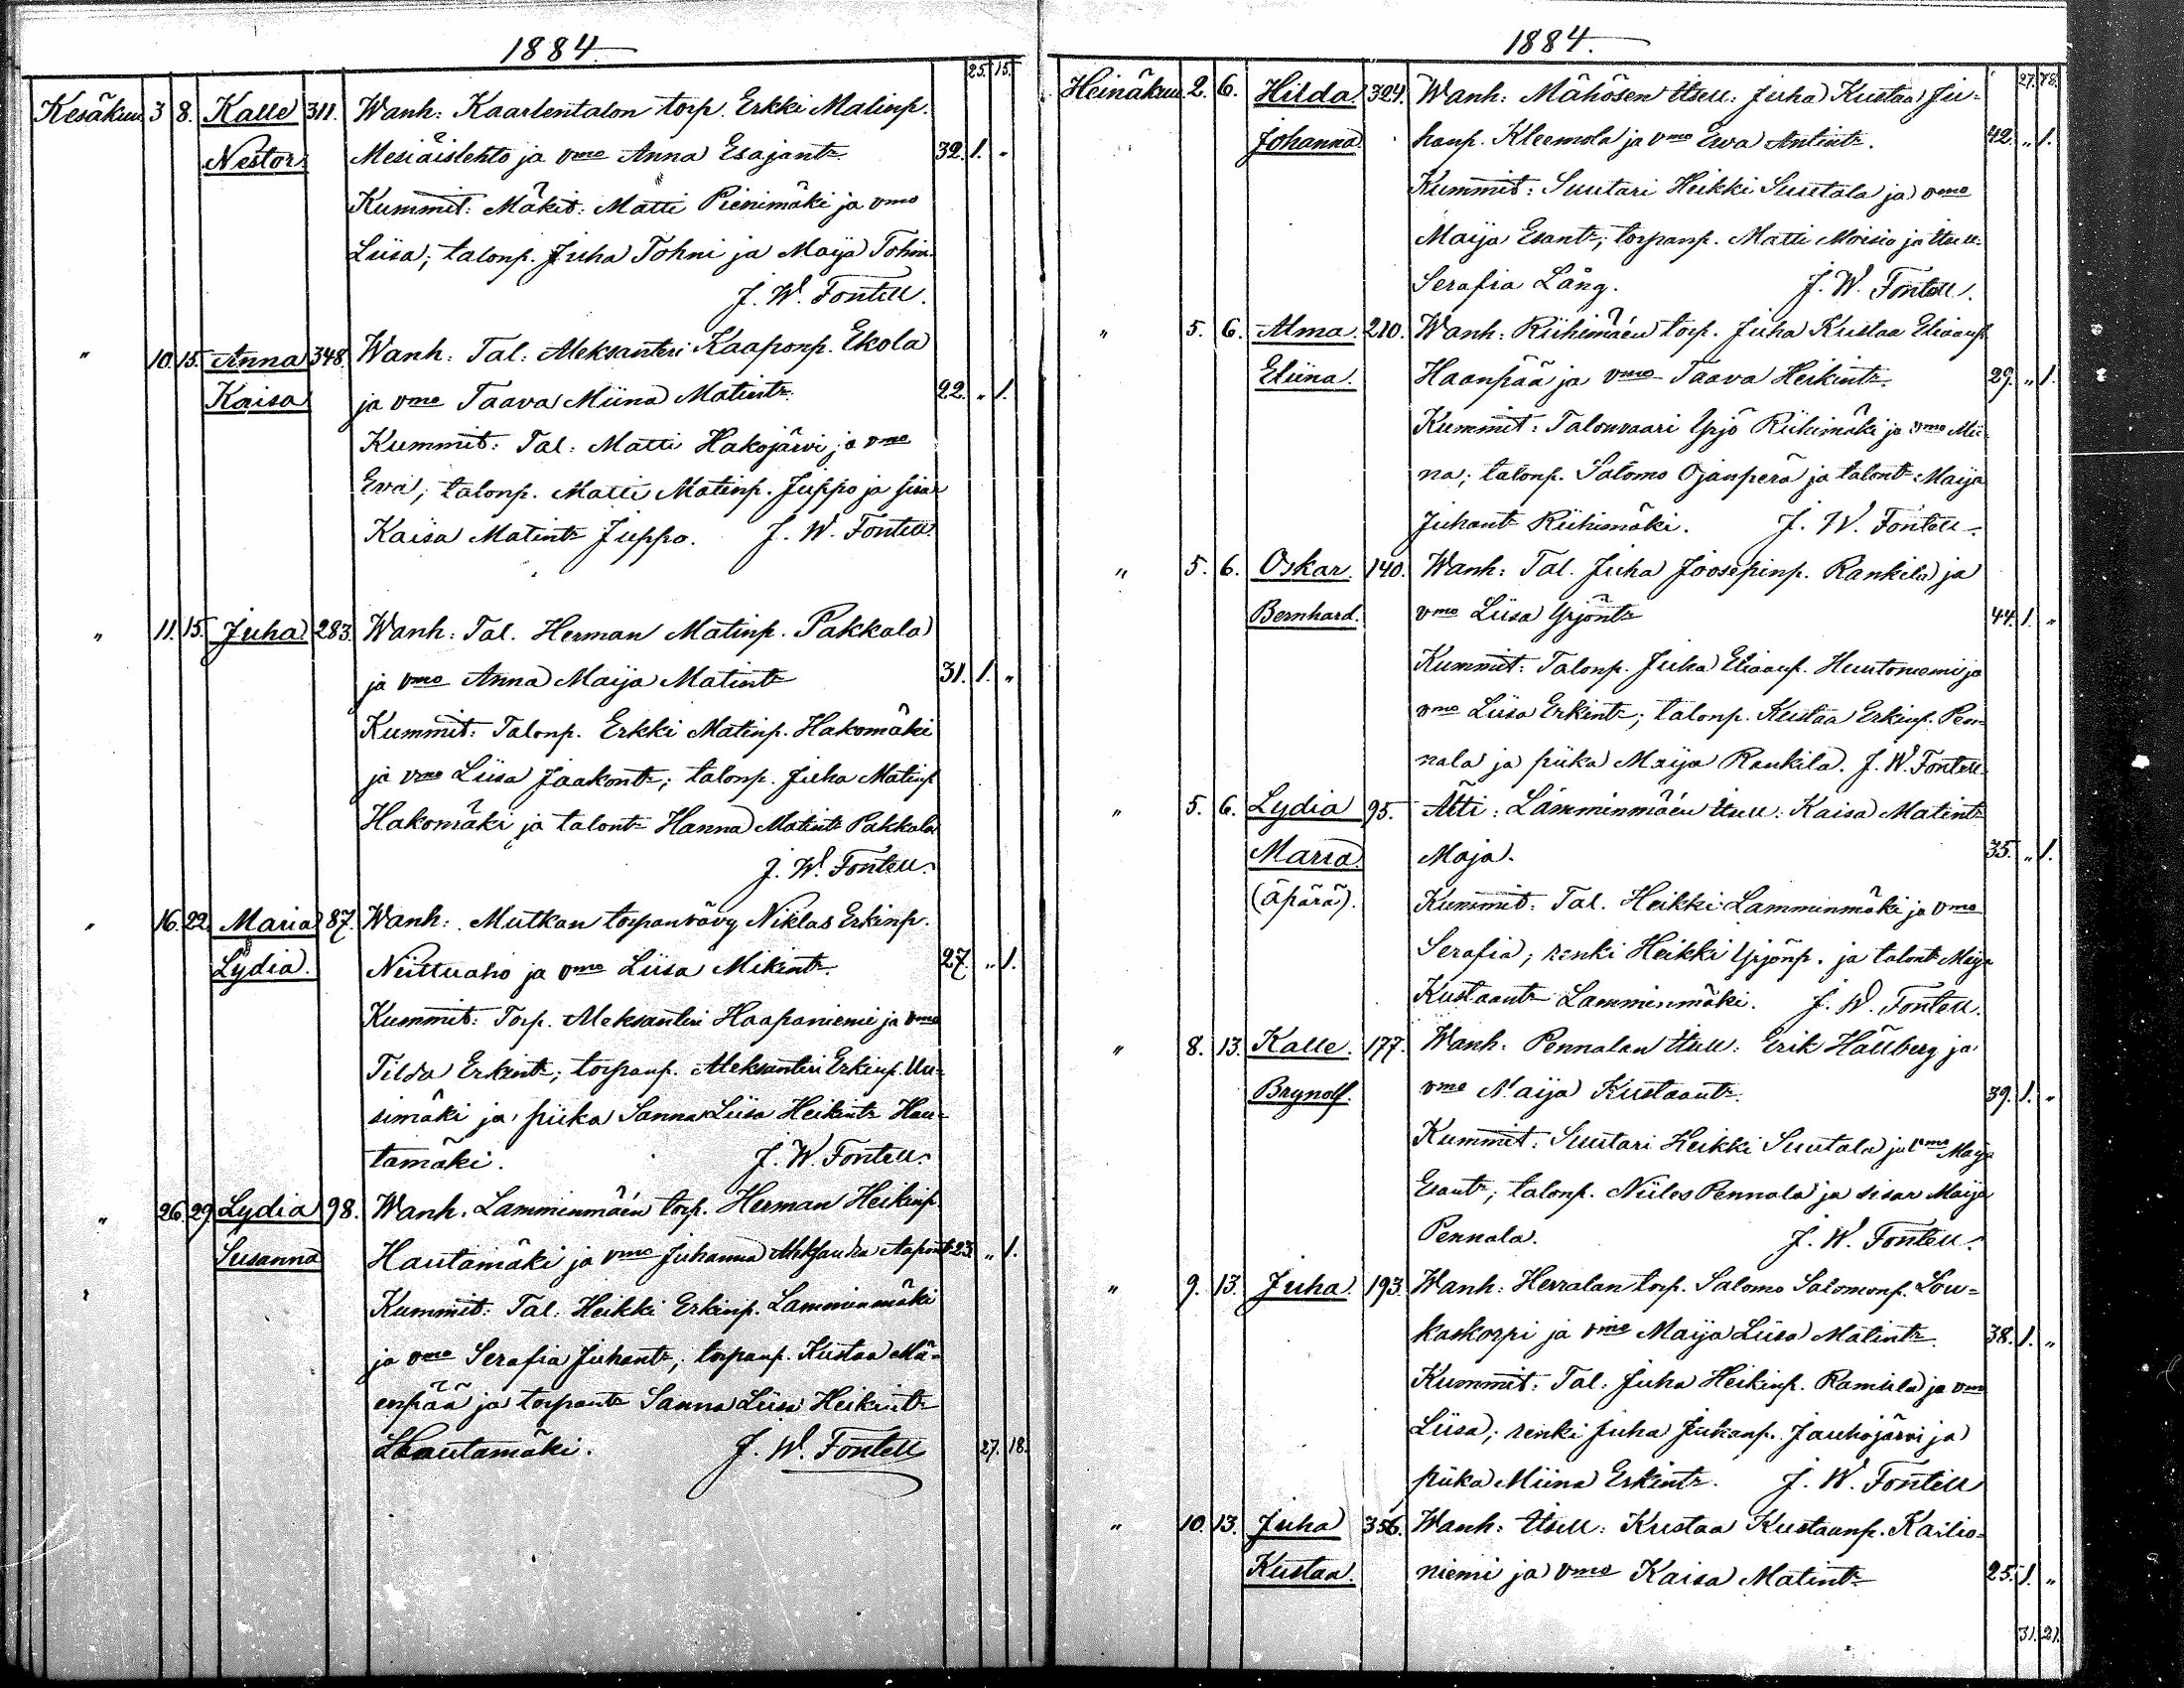 1884.
25. 15.
Kesäkuu 3 8. Kalle 311. Wanh: Kaarlentalon torp. Erkki Matinp.
Nestor Mesiäislehto ja vmo Anna Esajantr 32. 1. "
Kummit: Mäkit: Matti Pienimäki ja vmo
Liisa; talonp. Juha Tohni ja Maija Tohni.
J. W. Fontell.
" 10. 15. Anna 348. Wanh: Tal: Aleksanteri Kaaponp. Ekola
Kaisa ja vmo Taava Miina Matintr 22. " 1.
Kummit: Tal: Matti Hakojärvi ja vmo
Eva; talonp. Matti Matinp. Juppo ja sisar
Kaisa Matintr Juppo. J. W. Fontell.
" 11. 15. Juha 283. Wanh: Tal. Herman Matinp. Pakkala
ja vmo Anna Maija Matintr 31. 1. "
Kummit: Talonp. Erkki Matinp. Hakomäki
ja vmo Liisa Jaakontr; talonp. Juha Matinp
Hakomäki ja talontr Hanna Matintr Pakkala
J. W. Fontell.
" 16. 22. Maria 87. Wanh: Mutkan torpanvävy Niklas Erkinp.
Lydia. Neittuaho ja vmo Liisa Mikintr. 27. " 1.
Kummit: Torp. Aleksanteri Haapaniemi ja vmo
Tilda Erkintr; torpanp. Aleksanteri Erkinp. Uu-
simäki ja piika Sanna Liisa Heikintr Hau-
tamäki. J. W. Fontell.
" 26. 29. Lydia 98. Wanh. Lamminmäen torp. Herman Heikinp.
Susanna Hautamäki ja vmo Juhanna Aleksandra Aapontr 23. " 1.
Kummit: Tal: Heikki Erkinp. Lamminmäki
ja vmo Serafia Juhantr; torpanp. Kustaa Mä-
enpää ja torpantr Sanna Liisa Heikintr
Hautamäki. J. W. Fontell 27. 18.
1884.
27. 18.
Heinäkuu 2. 6. Hilda 324. Wanh: Mähösen itsell: Juha Kustaa Ju-
Johanna hanp. Kleemola ja vmo Eva Antintr. 42. " 1.
Kummit: Suutari Heikki Suutala ja vmo
Maija Esantr; torpanp. Matti Moisio ja itsell:
Serafia Lång. J. W. Fontell.
" 5. 6. Alma. 210. Wanh: Riihimäen torp. Juha Kustaa Eliaanp.
Eliina. Haanpää ja vmo Taava Heikintr. 29. " 1.
Kummit: Talonvaari Yrjö Riihimäki ja vmo Mii-
na; talonp. Salomo Ojanperä ja talontr Maija
Juhantr Riihimäki. J. W. Fontell.
" 5. 6. Oskar. 140. Wanh: Tal. Juha Joosepinp. Rankila ja
Bernhard. vmo Liisa Yrjöntr 44. 1. "
Kummit: Talonp. Juha Eliaanp. Huutoniemi ja
vmo Liisa Erkintr; talonp. Kustaa Erkinp. Pen-
nala ja piika Maija Rankila. J. W. Fontell.
" 5. 6. Lydia 95. Äiti: Lamminmäen itsell: Kaisa Matintr
Maria Maja. 35. " 1.
(äpärä). Kummit: Tal. Heikki Lamminmäki ja vmo
Serafia; renki Heikki Yrjönp. ja talontr Maija
Kustaantr Lamminmäki. J. W. Fontell.
" 8. 13. Kalle. 177. Wanh. Pennalan itsell: Erik Hällberg ja
Brynolf. vmo Maija Kustaantr. 39. 1. "
Kummit: Suutari Heikki Suutala ja vmo Maija
Esantr; talonp. Niilos Pennala ja sisar Maija
Pennala. J. W. Fontell.
" 9. 13. Juha. 193. Wanh: Herralan torp. Salomo Salomonp. Lou-
kaskorpi ja vmo Maija Liisa Matintr. 38. 1. "
Kummit: Tal: Juha Heikinp. Ranulla ja vmo
Liisa; renki Juha Juhanp. Jauhojärvi ja
piika Miina Erkintr. J. W. Fontell
" 10. 13. Juha 356. Wanh: Itsell: Kustaa Kustaanp. Kailio-
Kustaa. niemi ja vmo Kaisa Matintr 25. 1. "
31. 21.